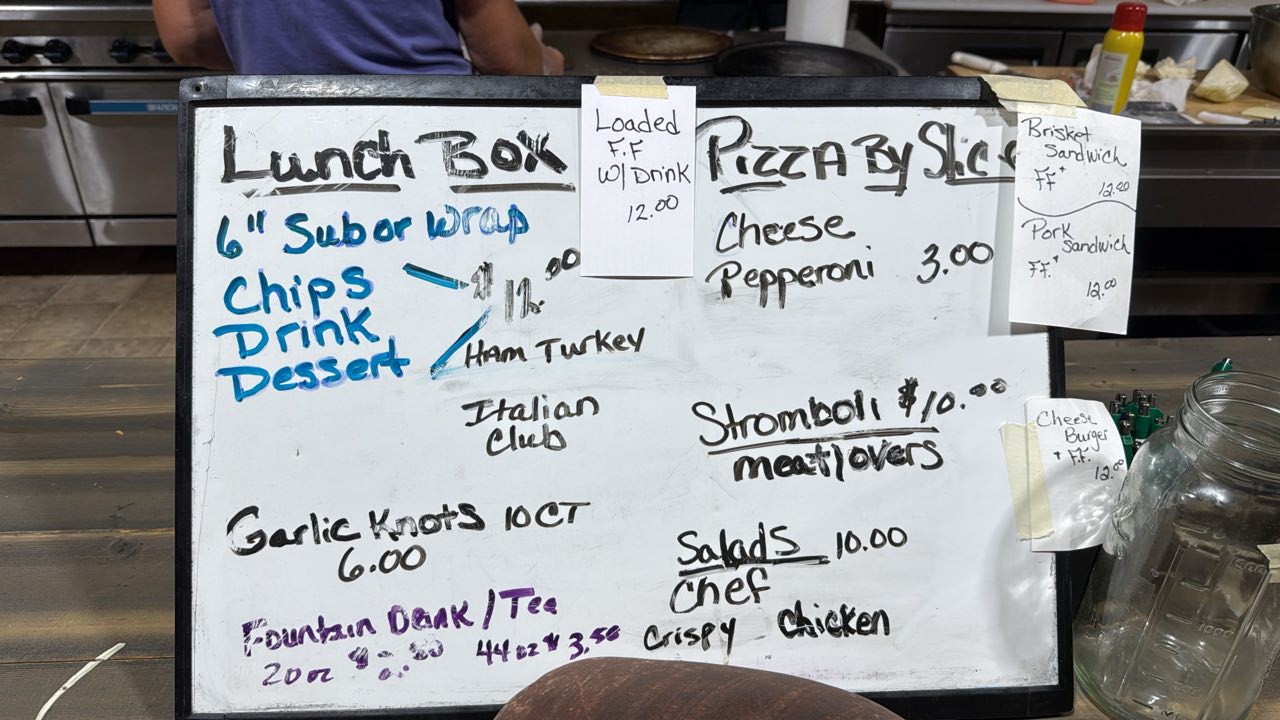 Lunch Box
6" Sub or Wrap
Chips
Drink
Dessert
Ham Turkey
Italian
Club
Garlic Knots 10CT
6.00
Fountain Drink / Tea
20 oz 44 oz $ 3.50
Loaded
F.F
W/ Drink
12.00
Pizza By Slice
Cheese
Pepperoni 3.00
Stromboli $10.00
meatlovers
Salads 10.00
Chef
Crispy Chicken
Brisket
Sandwich
FF+
12.00
Pork
Sandwich
FF.+
12.00
Cheese
Burger
+ F.F.
12.00